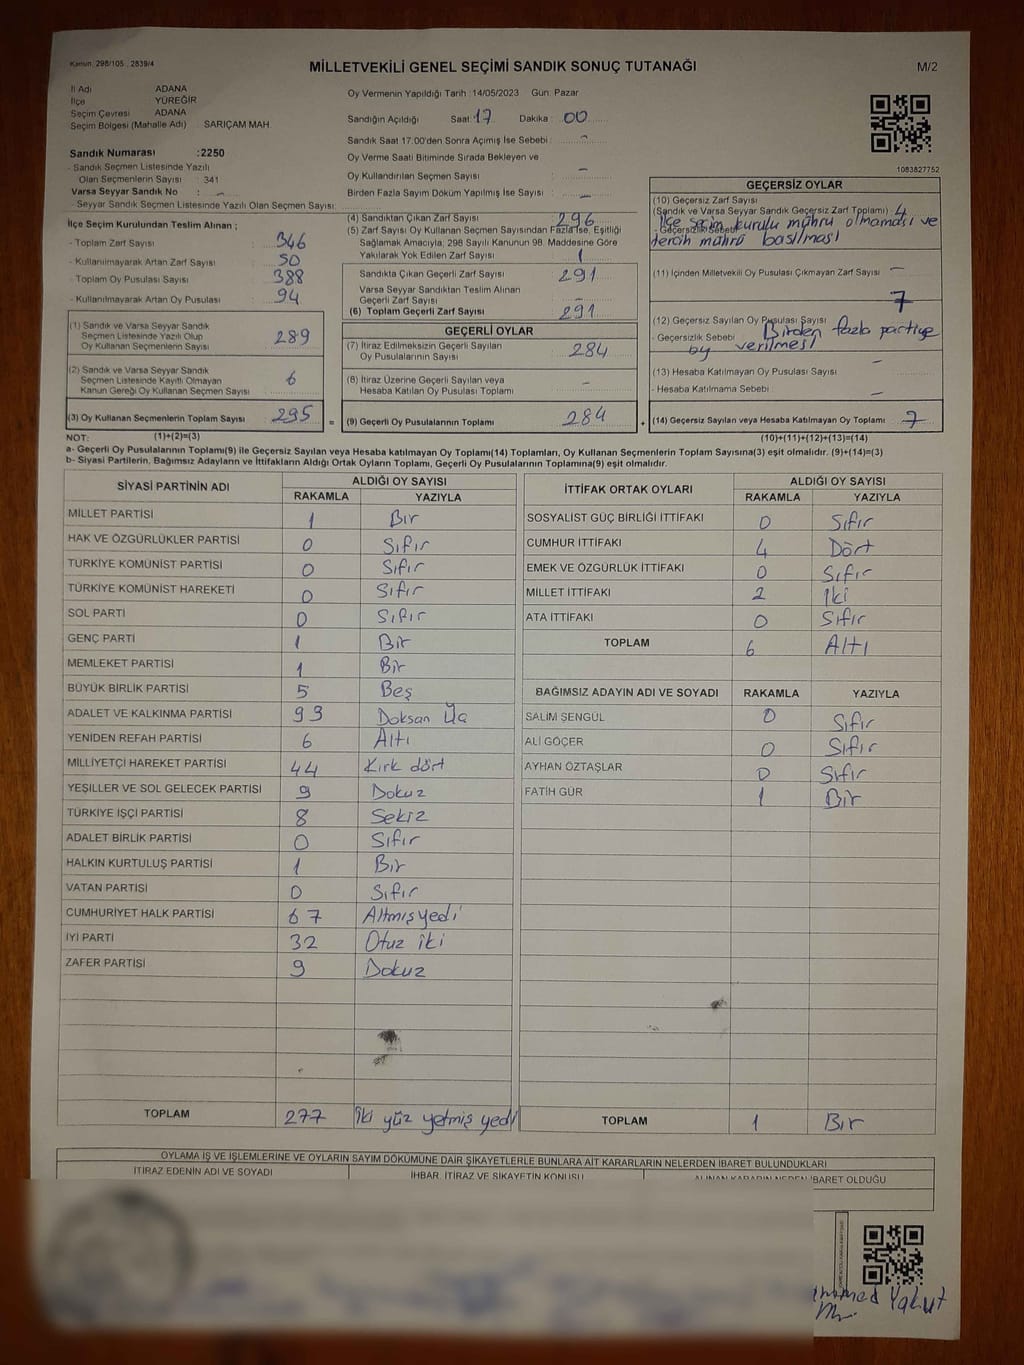 Kanun: 298/105 , 2839/4
MİLLETVEKİLİ GENEL SEÇİMİ SANDIK SONUÇ TUTANAĞI
M/2
İl Adı ADANA
İlçe YÜREĞİR
Seçim Çevresi ADANA
Seçim Bölgesi (Mahalle Adı) : SARIÇAM MAH.
Sandık Numarası :2250
- Sandık Seçmen Listesinde Yazılı
Olan Seçmenlerin Sayısı : 341
Varsa Seyyar Sandık No : -
- Seyyar Sandık Seçmen Listesinde Yazılı Olan Seçmen Sayısı:
Oy Vermenin Yapıldığı Tarih :14/05/2023 Gün: Pazar
Sandığın Açıldığı Saat: 17 Dakika : 00
Sandık Saat 17.00'den Sonra Açımış İse Sebebi : -
Oy Verme Saati Bitiminde Sırada Bekleyen ve
Oy Kullandırılan Seçmen Sayısı : -
Birden Fazla Sayım Döküm Yapılmış İse Sayısı : -
1083827752
İlçe Seçim Kurulundan Teslim Alınan ;
- Toplam Zarf Sayısı : 346
- Kullanılmayarak Artan Zarf Sayısı : 50
- Toplam Oy Pusulası Sayısı : 388
- Kullanılmayarak Artan Oy Pusulası : 94
(1) Sandık ve Varsa Seyyar Sandık
Seçmen Listesinde Yazılı Olup
Oy Kullanan Seçmenlerin Sayısı : 289
(2) Sandık ve Varsa Seyyar Sandık
Seçmen Listesinde Kayıtlı Olmayan
Kanun Gereği Oy Kullanan Seçmen Sayısı : 6
(3) Oy Kullanan Seçmenlerin Toplam Sayısı : 295
(4) Sandıktan Çıkan Zarf Sayısı : 296
(5) Zarf Sayısı Oy Kullanan Seçmen Sayısından Fazla İse, Eşitliği
Sağlamak Amacıyla, 298 Sayılı Kanunun 98. Maddesine Göre
Yakılarak Yok Edilen Zarf Sayısı : 1
Sandıkta Çıkan Geçerli Zarf Sayısı : 291
Varsa Seyyar Sandıktan Teslim Alınan
Geçerli Zarf Sayısı : -
(6) Toplam Geçerli Zarf Sayısı : 291
GEÇERLİ OYLAR
(7) İtiraz Edilmeksizin Geçerli Sayılan
Oy Pusulalarının Sayısı : 284
(8) İtiraz Üzerine Geçerli Sayılan veya
Hesaba Katılan Oy Pusulası Toplamı : -
= (9) Geçerli Oy Pusulalarının Toplamı : 284 +
GEÇERSİZ OYLAR
(10) Geçersiz Zarf Sayısı
(Sandık ve Varsa Seyyar Sandık Geçersiz Zarf Toplamı) : 4
- Geçersizlik Sebebi : İlçe seçim kurulu mührü olmaması ve
tercih mührü basılması
(11) İçinden Milletvekili Oy Pusulası Çıkmayan Zarf Sayısı : -
7
(12) Geçersiz Sayılan Oy Pusulası Sayısı
- Geçersizlik Sebebi : Birden fazla partiye
oy verilmesi
(13) Hesaba Katılmayan Oy Pusulası Sayısı : -
- Hesaba Katılmama Sebebi : -
(14) Geçersiz Sayılan veya Hesaba Katılmayan Oy Toplamı : 7
NOT: (1)+(2)=(3)
(10)+(11)+(12)+(13)=(14)
a- Geçerli Oy Pusulalarının Toplamı(9) ile Geçersiz Sayılan veya Hesaba Katılmayan Oy Toplamı(14) Toplamları, Oy Kullanan Seçmenlerin Toplam Sayısına(3) eşit olmalıdır. (9)+(14)=(3)
b- Siyasi Partilerin, Bağımsız Adayların ve İttifakların Aldığı Ortak Oyların Toplamı, Geçerli Oy Pusulalarının Toplamına(9) eşit olmalıdır.
SİYASİ PARTİNİN ADI ALDIĞI OY SAYISI
RAKAMLA YAZIYLA
MİLLET PARTİSİ 1 Bir
HAK VE ÖZGÜRLÜKLER PARTİSİ 0 Sıfır
TÜRKİYE KOMÜNİST PARTİSİ 0 Sıfır
TÜRKİYE KOMÜNİST HAREKETİ 0 Sıfır
SOL PARTİ 0 Sıfır
GENÇ PARTİ 1 Bir
MEMLEKET PARTİSİ 1 Bir
BÜYÜK BİRLİK PARTİSİ 5 Beş
ADALET VE KALKINMA PARTİSİ 93 Doksan Üç
YENİDEN REFAH PARTİSİ 6 Altı
MİLLİYETÇİ HAREKET PARTİSİ 44 Kırk dört
YEŞİLLER VE SOL GELECEK PARTİSİ 9 Dokuz
TÜRKİYE İŞÇİ PARTİSİ 8 Sekiz
ADALET BİRLİK PARTİSİ 0 Sıfır
HALKIN KURTULUŞ PARTİSİ 1 Bir
VATAN PARTİSİ 0 Sıfır
CUMHURİYET HALK PARTİSİ 67 Altmış yedi
İYİ PARTİ 32 Otuz iki
ZAFER PARTİSİ 9 Dokuz
TOPLAM 277 İki yüz yetmiş yedi
İTTİFAK ORTAK OYLARI ALDIĞI OY SAYISI
RAKAMLA YAZIYLA
SOSYALİST GÜÇ BİRLİĞİ İTTİFAKI 0 Sıfır
CUMHUR İTTİFAKI 4 Dört
EMEK VE ÖZGÜRLÜK İTTİFAKI 0 Sıfır
MİLLET İTTİFAKI 2 İki
ATA İTTİFAKI 0 Sıfır
TOPLAM 6 Altı
BAĞIMSIZ ADAYIN ADI VE SOYADI RAKAMLA YAZIYLA
SALİM ŞENGÜL 0 Sıfır
ALİ GÖÇER 0 Sıfır
AYHAN ÖZTAŞLAR 0 Sıfır
FATİH GÜR 1 Bir
TOPLAM 1 Bir
OYLAMA İŞ VE İŞLEMLERİNE VE OYLARIN SAYIM DÖKÜMÜNE DAİR ŞİKAYETLERLE BUNLARA AİT KARARLARIN NELERDEN İBARET BULUNDUKLARI
İTİRAZ EDENİN ADI VE SOYADI İHBAR, İTİRAZ VE ŞİKAYETİN KONUSU ALINAN KARARIN NEDEN İBARET OLDUĞU
Yakut